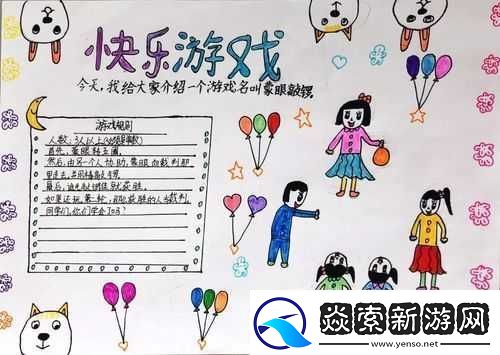 快乐游戏
今天,我给大家介绍一个游戏名叫蒙眼敲锣。
游戏规则
人数:3人以上(必须是单数)
首先,蒙眼转五圈
然后,由另一个人协助,蒙眼向裁判那
里走去,并用棒敲大锣
最后,谁先敲锣谁就获胜。
如果还玩第二轮,那么获胜的人当裁判
同学们,你们学会了吗?
焱索新游网
www.yenso.net